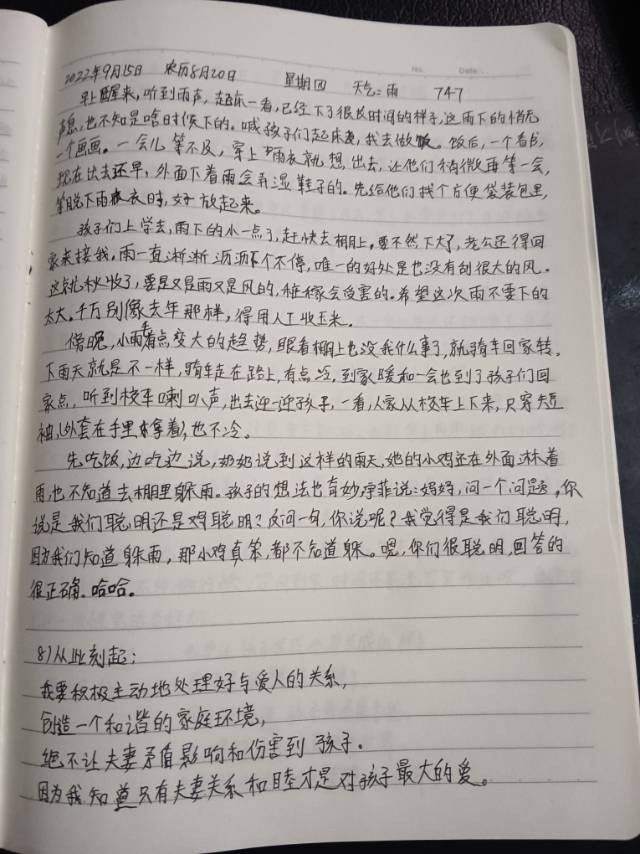 No. Date:
2022年9月15日 农历8月20日 星期四 天气:雨 747
早上醒来,听到雨声,起床一看,已经下了很长时间的样子,这雨下的悄无
声息,也不知是啥时候下的。喊孩子们起床,我去做饭。饭后,一个看书,
一个画画。一会儿等不及,穿上雨衣就想出去,让他们稍微再等一会,
现在出去还早,外面下着雨会弄湿鞋子的。先给他们找个方便袋装包里,
等脱下雨衣时,好放起来。
孩子们上学去,雨下的小一点了,赶快去棚上,要不然下大了,老公还得回
家来接我。雨一直淅淅沥沥下个不停,唯一的好处是也没有刮很大的风。
这就秋收了,要是又是雨又是风的,庄稼会受害的。希望这次雨不要下的
太大。千万别像去年那样,得用人工收玉米。
傍晚,小雨有点变大的趋势,眼看棚上也没我什么事了,就骑车回家转。
下雨天就是不一样,骑车走在路上,有点冷,到家暖和一会也到了孩子们回
家点,听到校车喇叭声,出去迎一迎孩子,一看,人家从校车上下来,只穿短
袖,(外套在手里拿着),也不冷。
先吃饭,边吃边说,奶奶说到这样的雨天,她的小鸡还在外面淋着
雨,也不知道去棚里躲雨。孩子的想法也奇妙,宇菲说:妈妈,问一个问题,你
说是我们聪明还是鸡聪明?反问一句,你说呢?我觉得是我们聪明,
因为我们知道躲雨,那小鸡真笨,都不知道躲。嗯,你们很聪明,回答的
很正确。哈哈。
8)从此刻起:
我要积极主动地处理好与爱人的关系,
创造一个和谐的家庭环境,
绝不让夫妻矛盾影响和伤害到孩子。
因为我知道只有夫妻关系和睦才是对孩子最大的爱。